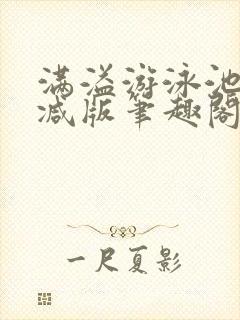 满溢游泳池
减版笔趣阁
一尺夏影